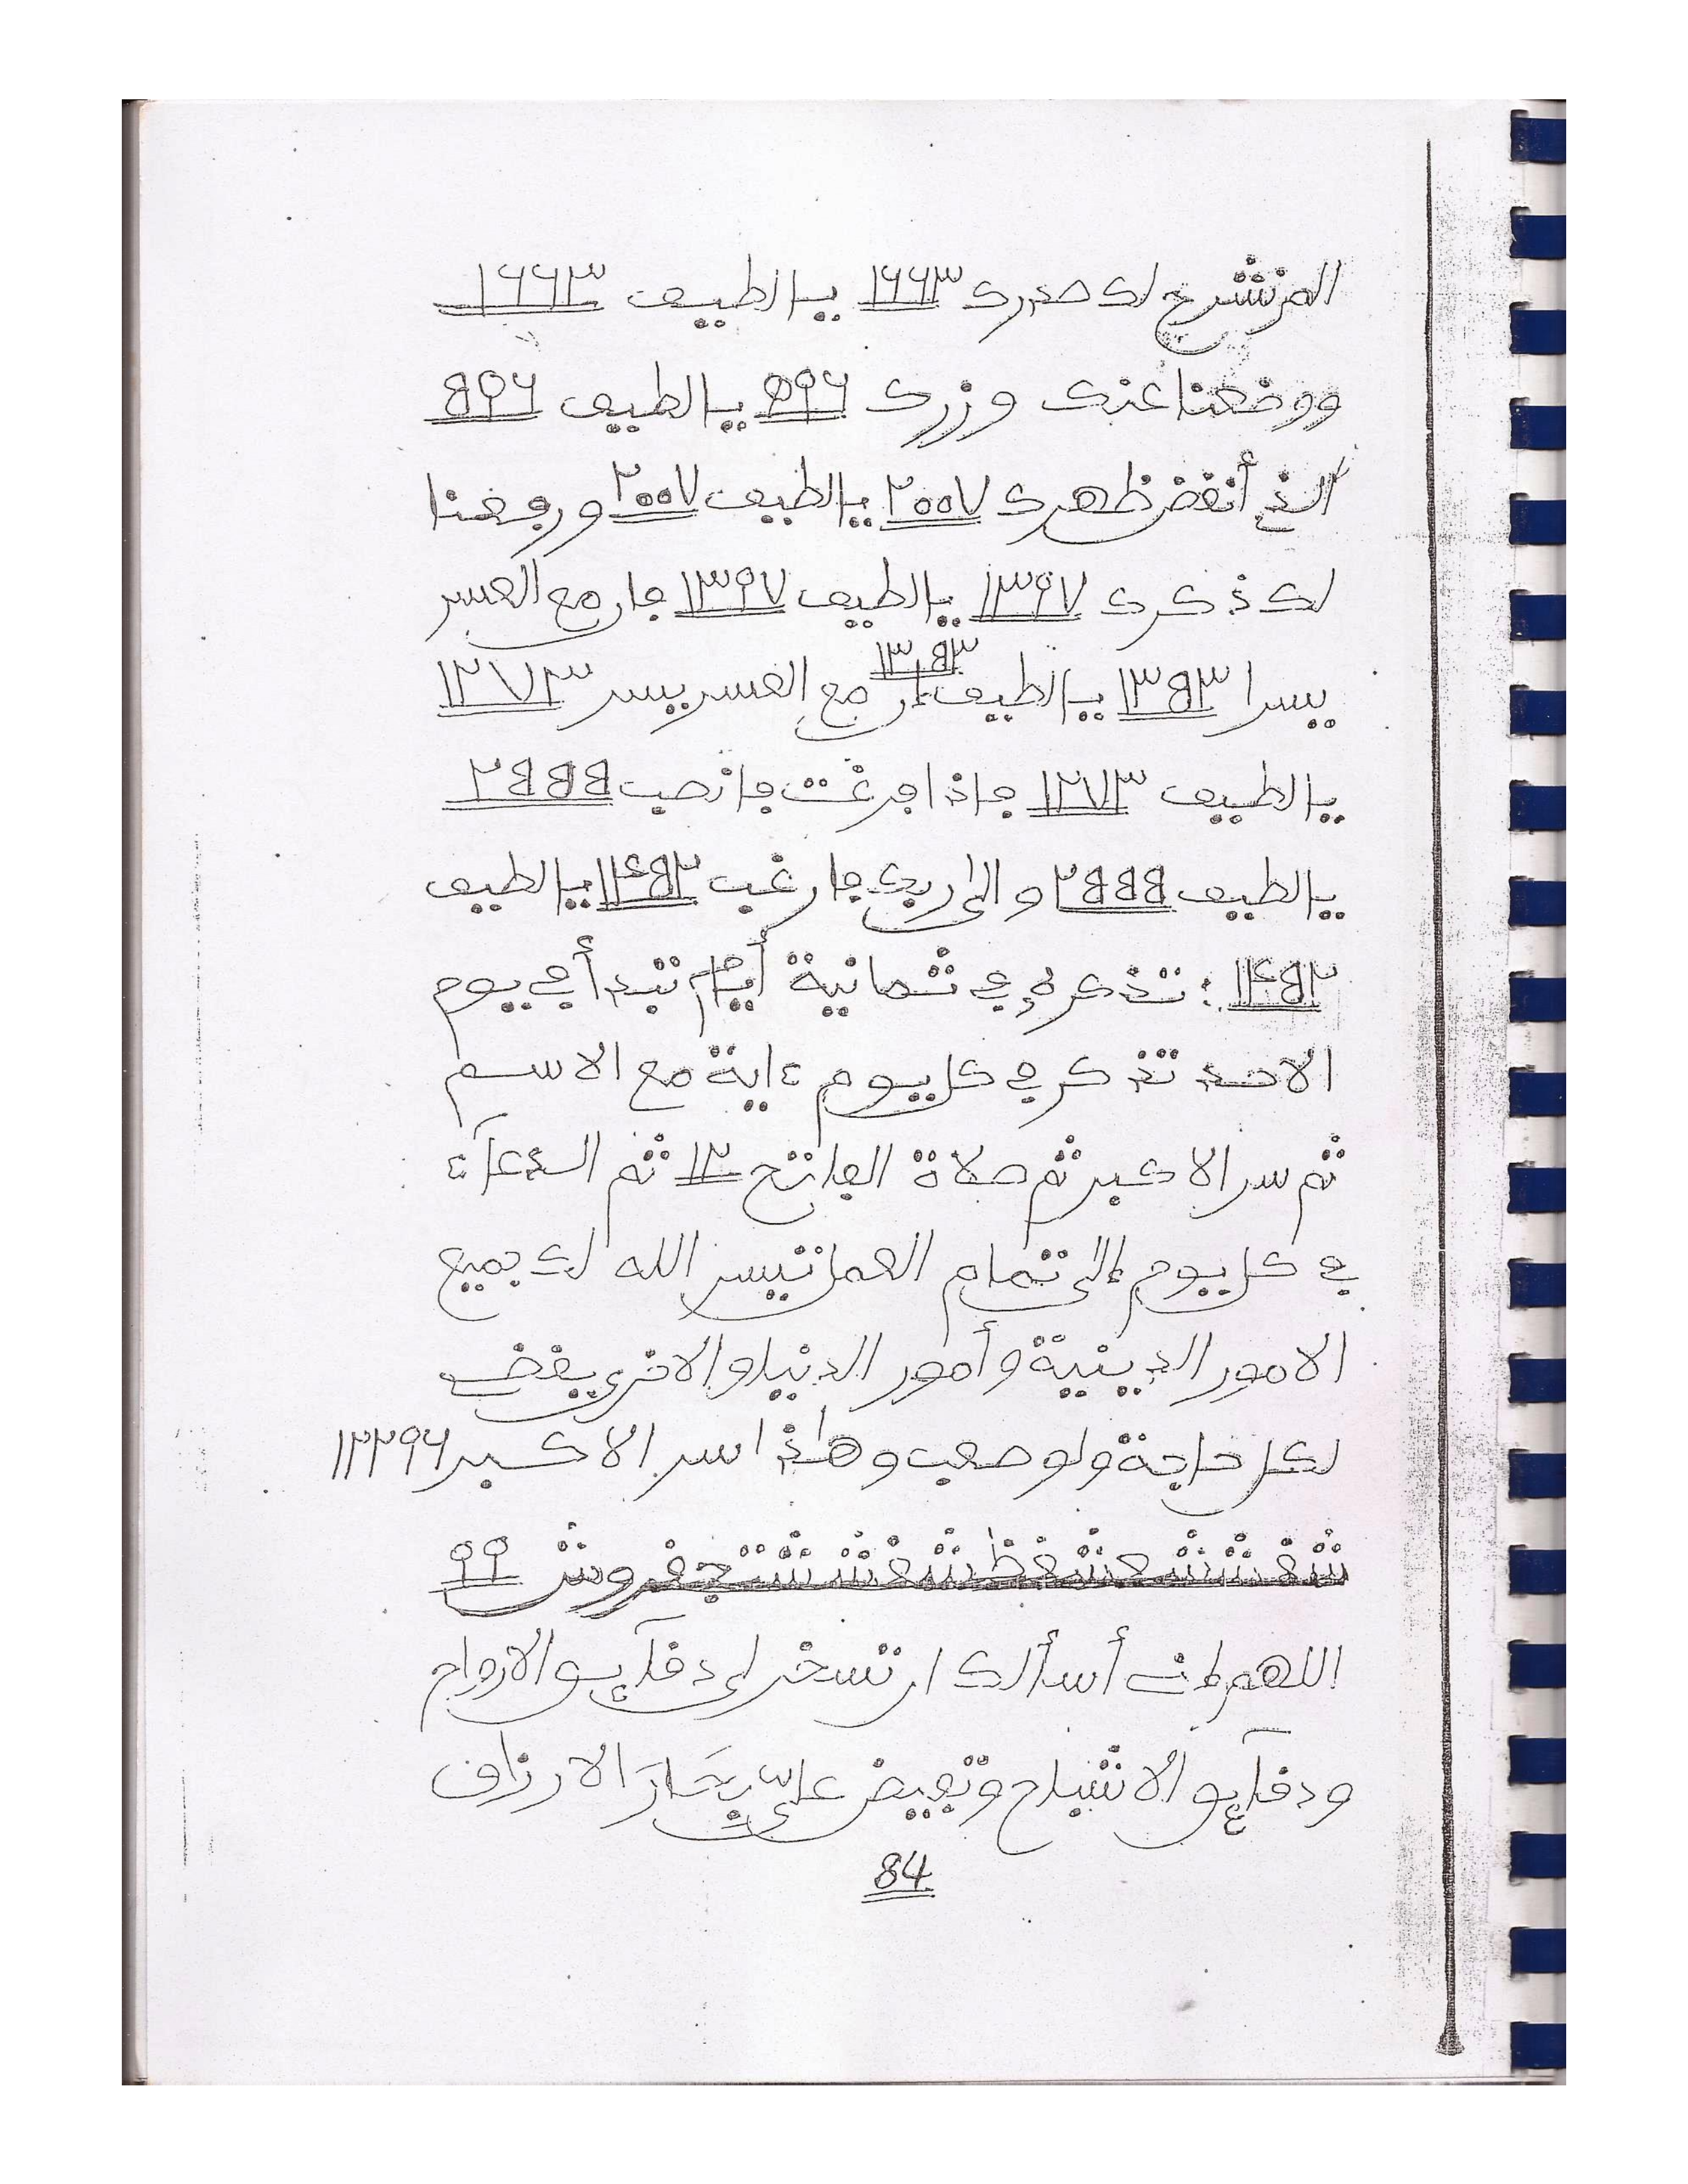 الم نشرح لك صدرك ١٦٦٣ يا لطيف ١٦٦٣
ووضعنا عنك وزرك ٥٩٦ يا لطيف ٥٩٦
الذي أنقض ظهرك ٢٠٠٧ يا لطيف ٢٠٠٧ ورفعنا
لك ذكرك ١٣٩٧ يا لطيف ١٣٩٧ فان مع العسر
١٣٥٣
يسرا ١٣٥٣ يا لطيف ان مع العسر يسر ١٢٧٣
يا لطيف ١٢٧٣ فاذا فرغت فانصب ٢٥٥٥
يا لطيف ٢٥٥٥ والى ربك فارغب ١٤٥٢ يا لطيف
١٤٥٢ : تذكره في ثمانية أيام تبدأ في يوم
الاحد تذكر في كل يوم ءاية مع الاسم
ثم سر الاكبر ثم صلاة الفاتح ١٢ ثم الدعآء
في كل يوم إلى تمام العمل تيسر الله لك جميع
الامور الدينية وأمور الدنيا والاخرى يقضى
لكل حاجة ولو صعب وهاذا سر الاكبر ١٢٢٩٦
٩٩
اللهم إنى أسألك ان تسخر لى دقآيق الارواح
ودقآيق الاشباح وتفيض عليّ بحار الارزاق
84